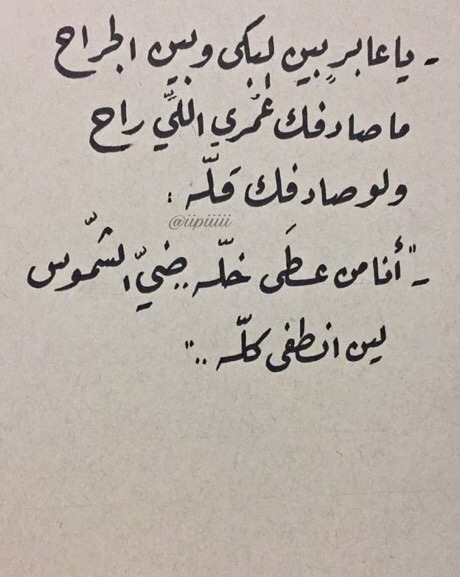 - ياعابرٍ بين البكى وبين الجراح
ماصادفك عُمري اللّي راح
ولو صادفك قلّه :
@iipiiiii
- "أنا من عطَى خلّه .. ضيّ الشّموس
لين انطفى كلّه .. "